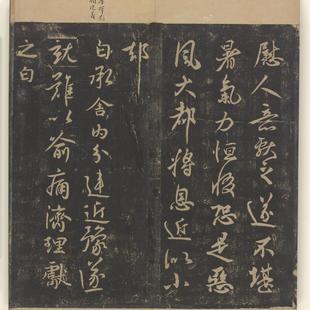 慰人意獻之遂不堪
暑氣力恒惙恐是惡
風大都將息近似小
却
白承舍內分違近豫遂
就難以喻痛濟理獻
之白